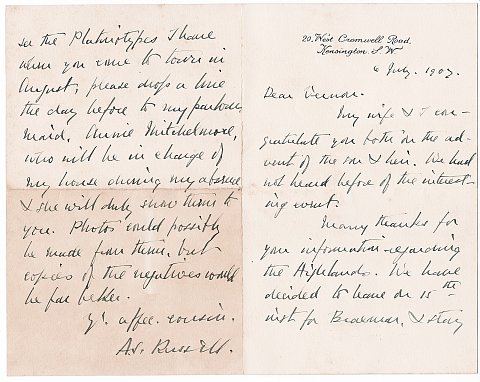 20, West Cromwell Road,
Kensington. S.W.
6 July. 1907.
Dear Vernon.
My wife & I con-
gratulate you both on the ad-
vent of the son & heir. We had
not heard before of the interest-
ing event.
Many thanks for
your information regarding
the Highlands. We have
decided to leave on 15th
inst for Braemar, & stay
see the Platinotypes I have
when you come to town in
August, please drop a line
the day before to my parlour
maid, Annie Mitchelmore,
who will be in charge of
my house during my absence
& she will duly show them to
you. Photos could possibly
be made from them, but
copies of the negatives would
be far better.
Yr. affec. cousin.
Russell.